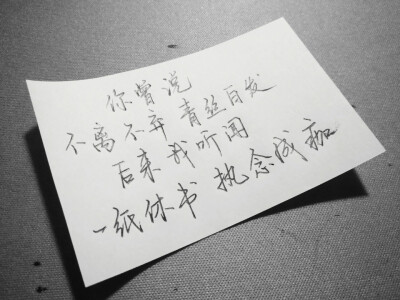 你曾说
不离不弃 青丝白发
后来 我听闻
一纸休书 执念成痴